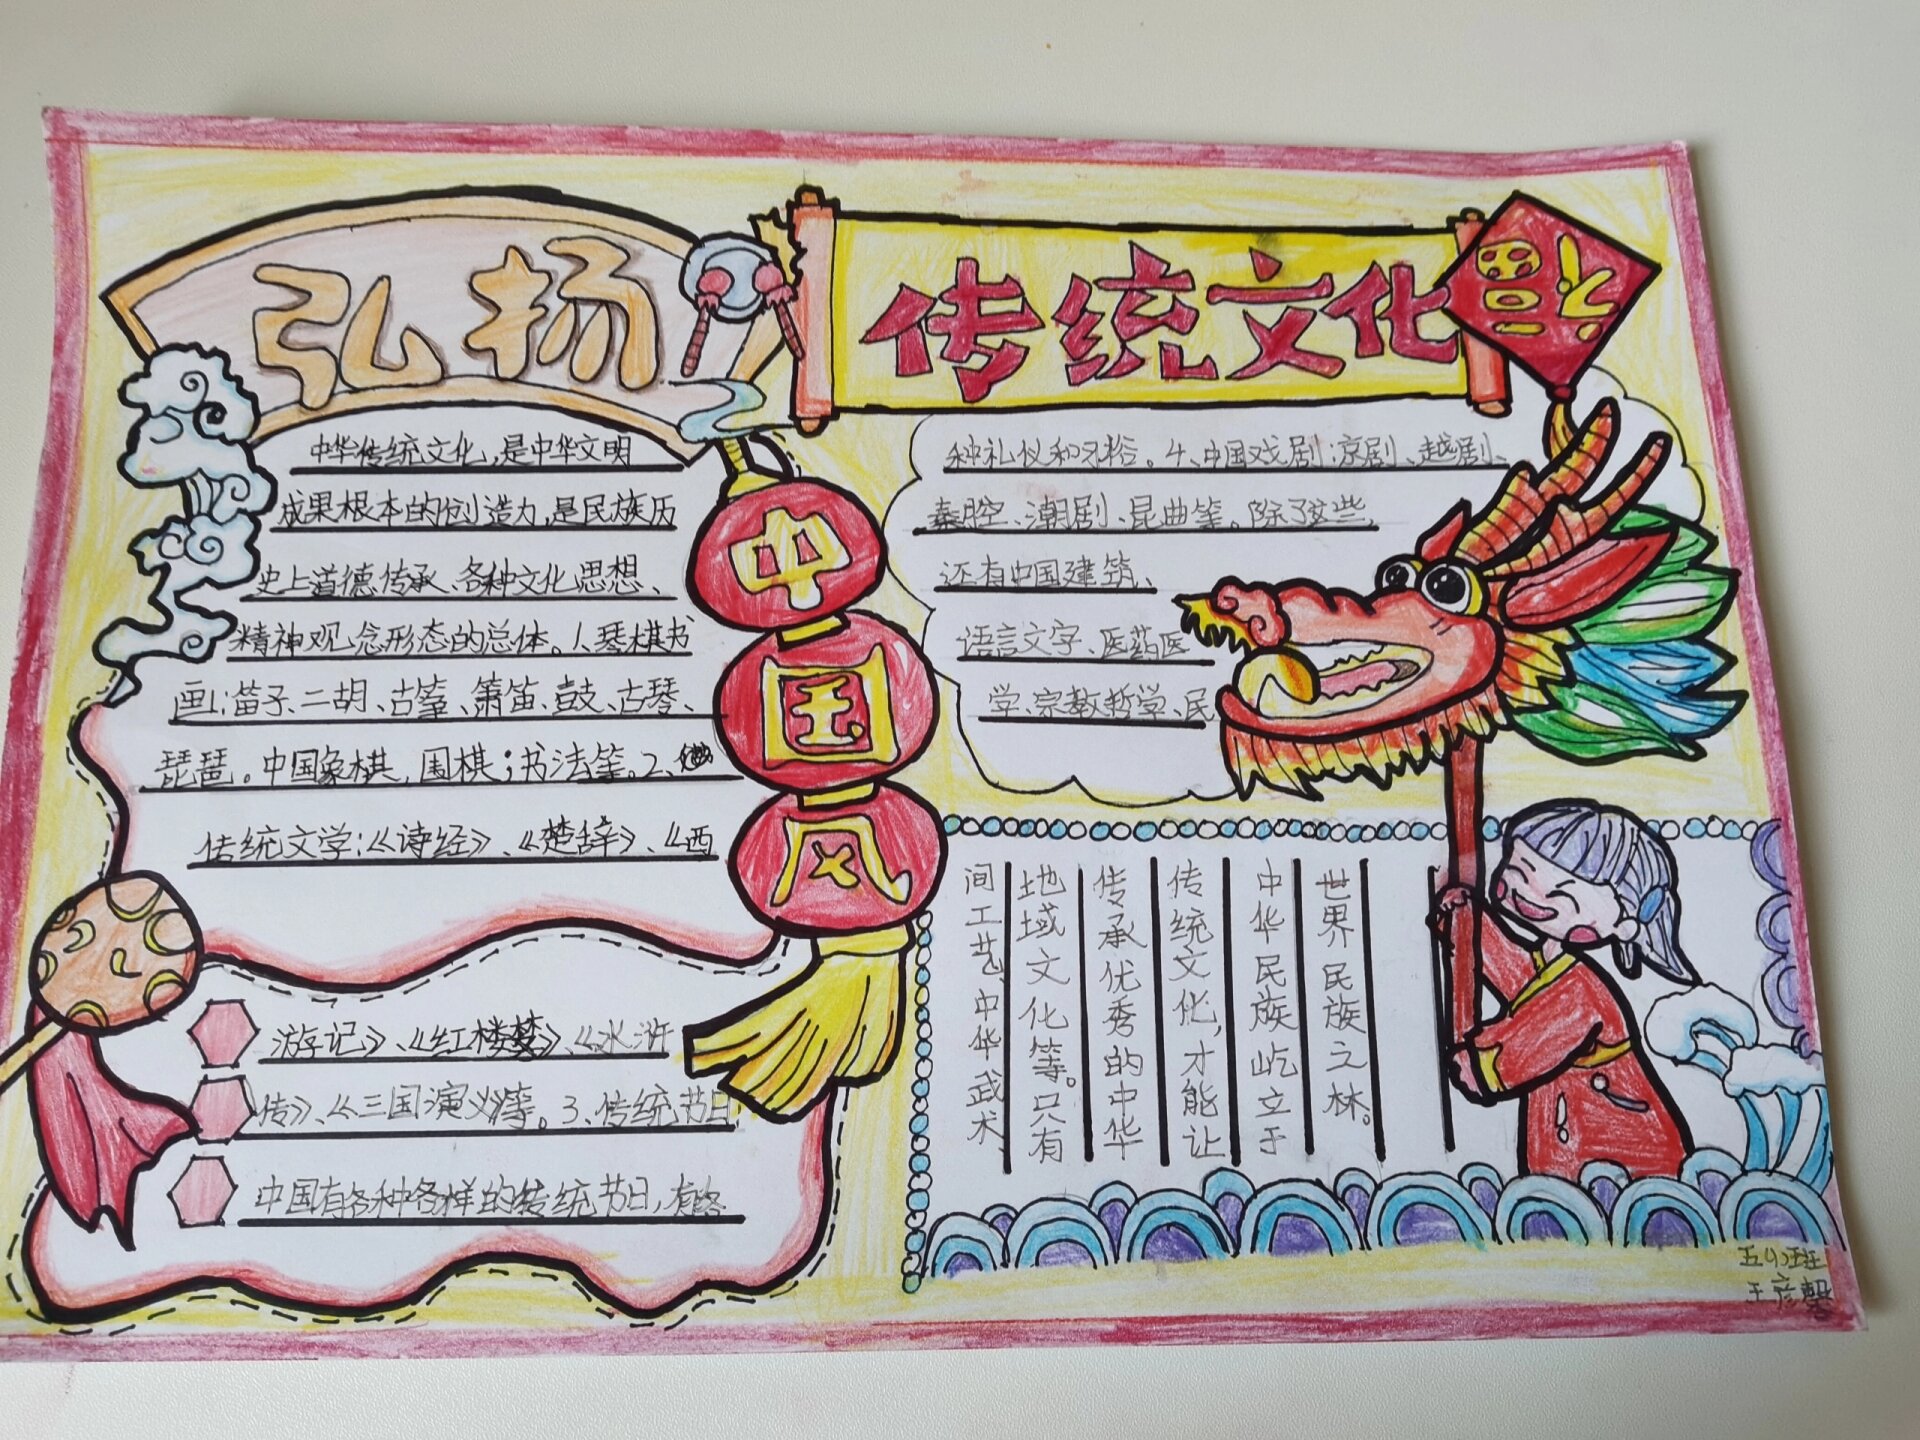 弘扬
传统文化
福
中国风
中华传统文化,是中华文明
成果根本的创造力,是民族历
史上道德传承、各种文化思想、
精神观念形态的总体。1、琴棋书
画:笛子、二胡、古筝、箫笛、鼓、古琴、
琵琶。中国象棋,围棋;书法等。2、
传统文学:《诗经》、《楚辞》、《西
游记》、《红楼梦》、《水浒
传》、《三国演义》等。3、传统节日
中国有各种各样的传统节日,有各
种礼仪和习俗。4、中国戏剧:京剧、越剧、
秦腔、潮剧、昆曲等。除了这些,
还有中国建筑、
语言文字、医药医
学、宗教哲学、民
间工艺、中华武术、
地域文化等。只有
传承优秀的中华
传统文化,才能让
中华民族屹立于
世界民族之林。
王彦馨